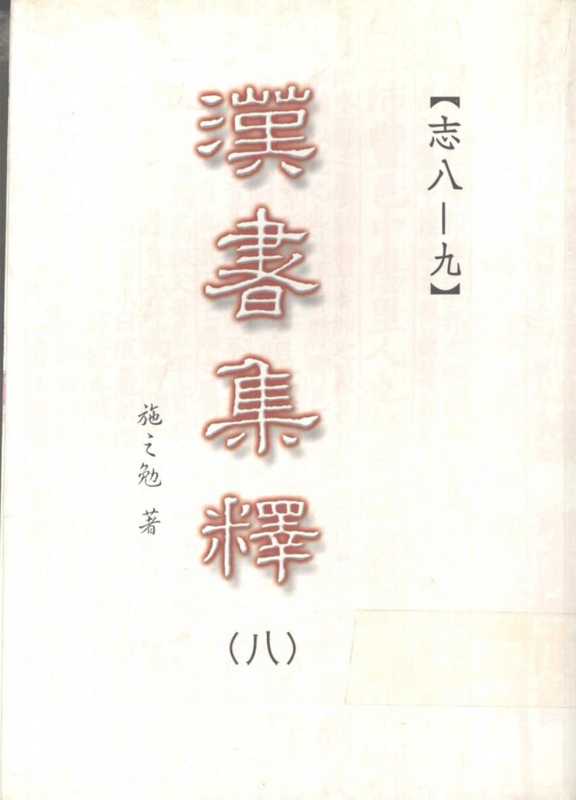 【志八—九】
漢書集釋
(八)
施之勉 著